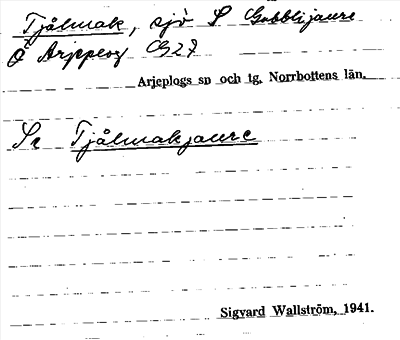 Tjålmak, sjö S Gubblijaure
Ö Arjeplog G27
Arjeplogs sn och tg. Norrbottens län.
Se Tjålmakjaure
Sigvard Wallström, 1941.